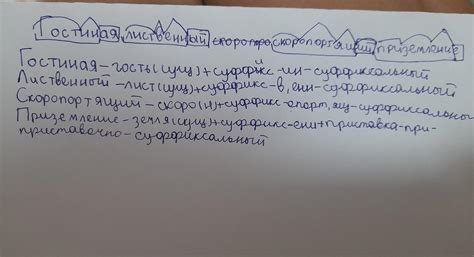 Гостиная, лиственный скоропо скоропортящий приземление
Гостиная – гость(сущ)+суффикс-ин-суффиксальный
Лиственный – лист(сущ)+суффикс-в,енн-суффиксальный
Скоропортящий – скоро(н)+суффикс-опорт,ящ-суффиксальны
Приземление-земля(сущ)+суффикс-ени+приставка-при-
приставочно-суффиксальный